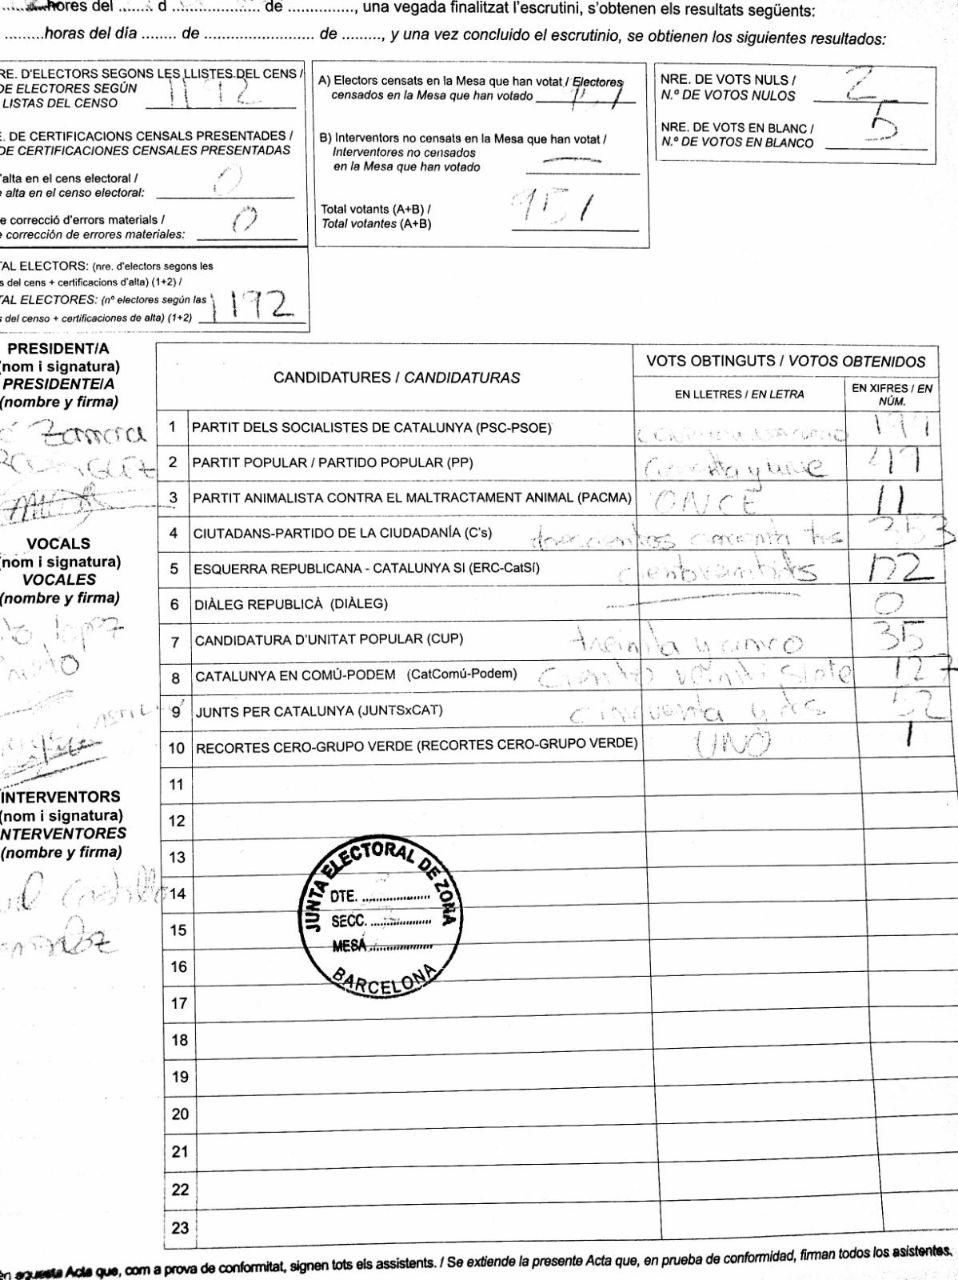 hores del ........ d ..................... de .............., una vegada finalitzat l'escrutini, s'obtenen els resultats següents:
.........horas del día ........ de ....................... de ........., y una vez concluido el escrutinio, se obtienen los siguientes resultados:
RE. D'ELECTORS SEGONS LES LLISTES DEL CENS /
DE ELECTORES SEGÚN
LISTAS DEL CENSO 1192
. DE CERTIFICACIONS CENSALS PRESENTADES /
DE CERTIFICACIONES CENSALES PRESENTADAS
'alta en el cens electoral /
e alta en el censo electoral: 0
e correcció d'errors materials /
e corrección de errores materiales: 0
TAL ELECTORS: (nre. d'electors segons les
s del cens + certificacions d'alta) (1+2) /
TAL ELECTORES: (nº electores según las
s del censo + certificaciones de alta) (1+2) 1192
A) Electors censats en la Mesa que han votat / Electores
censados en la Mesa que han votado
B) Interventors no censats en la Mesa que han votat /
Interventores no censados
en la Mesa que han votado —
Total votants (A+B) /
Total votantes (A+B) 951
NRE. DE VOTS NULS /
N.º DE VOTOS NULOS 2
NRE. DE VOTS EN BLANC /
N.º DE VOTOS EN BLANCO 5
PRESIDENT/A
(nom i signatura)
PRESIDENTE/A
(nombre y firma)
Zamora
VOCALS
(nom i signatura)
VOCALES
(nombre y firma)
lopez
INTERVENTORS
(nom i signatura)
INTERVENTORES
(nombre y firma)
Castillo
CANDIDATURES / CANDIDATURAS
VOTS OBTINGUTS / VOTOS OBTENIDOS
EN LLETRES / EN LETRA
EN XIFRES / EN
NÚM.
1 PARTIT DELS SOCIALISTES DE CATALUNYA (PSC-PSOE)
2 PARTIT POPULAR / PARTIDO POPULAR (PP)
3 PARTIT ANIMALISTA CONTRA EL MALTRACTAMENT ANIMAL (PACMA) ONCE 11
4 CIUTADANS-PARTIDO DE LA CIUDADANÍA (C's) 353
5 ESQUERRA REPUBLICANA - CATALUNYA SI (ERC-CatSí)
6 DIÀLEG REPUBLICÀ (DIÀLEG) — 0
7 CANDIDATURA D'UNITAT POPULAR (CUP) treinta y cinco 35
8 CATALUNYA EN COMÚ-PODEM (CatComú-Podem) ciento veintisiete 127
9 JUNTS PER CATALUNYA (JUNTSxCAT) cincuenta y dos 52
10 RECORTES CERO-GRUPO VERDE (RECORTES CERO-GRUPO VERDE) UNO 1
11
12
13
14
15
16
17
18
19
20
21
22
23
JUNTA ELECTORAL DE ZONA
DTE. ..................
SECC. ................
MESA ................
BARCELONA
aquesta Acta que, com a prova de conformitat, signen tots els assistents. / Se extiende la presente Acta que, en prueba de conformidad, firman todos los asistentes.